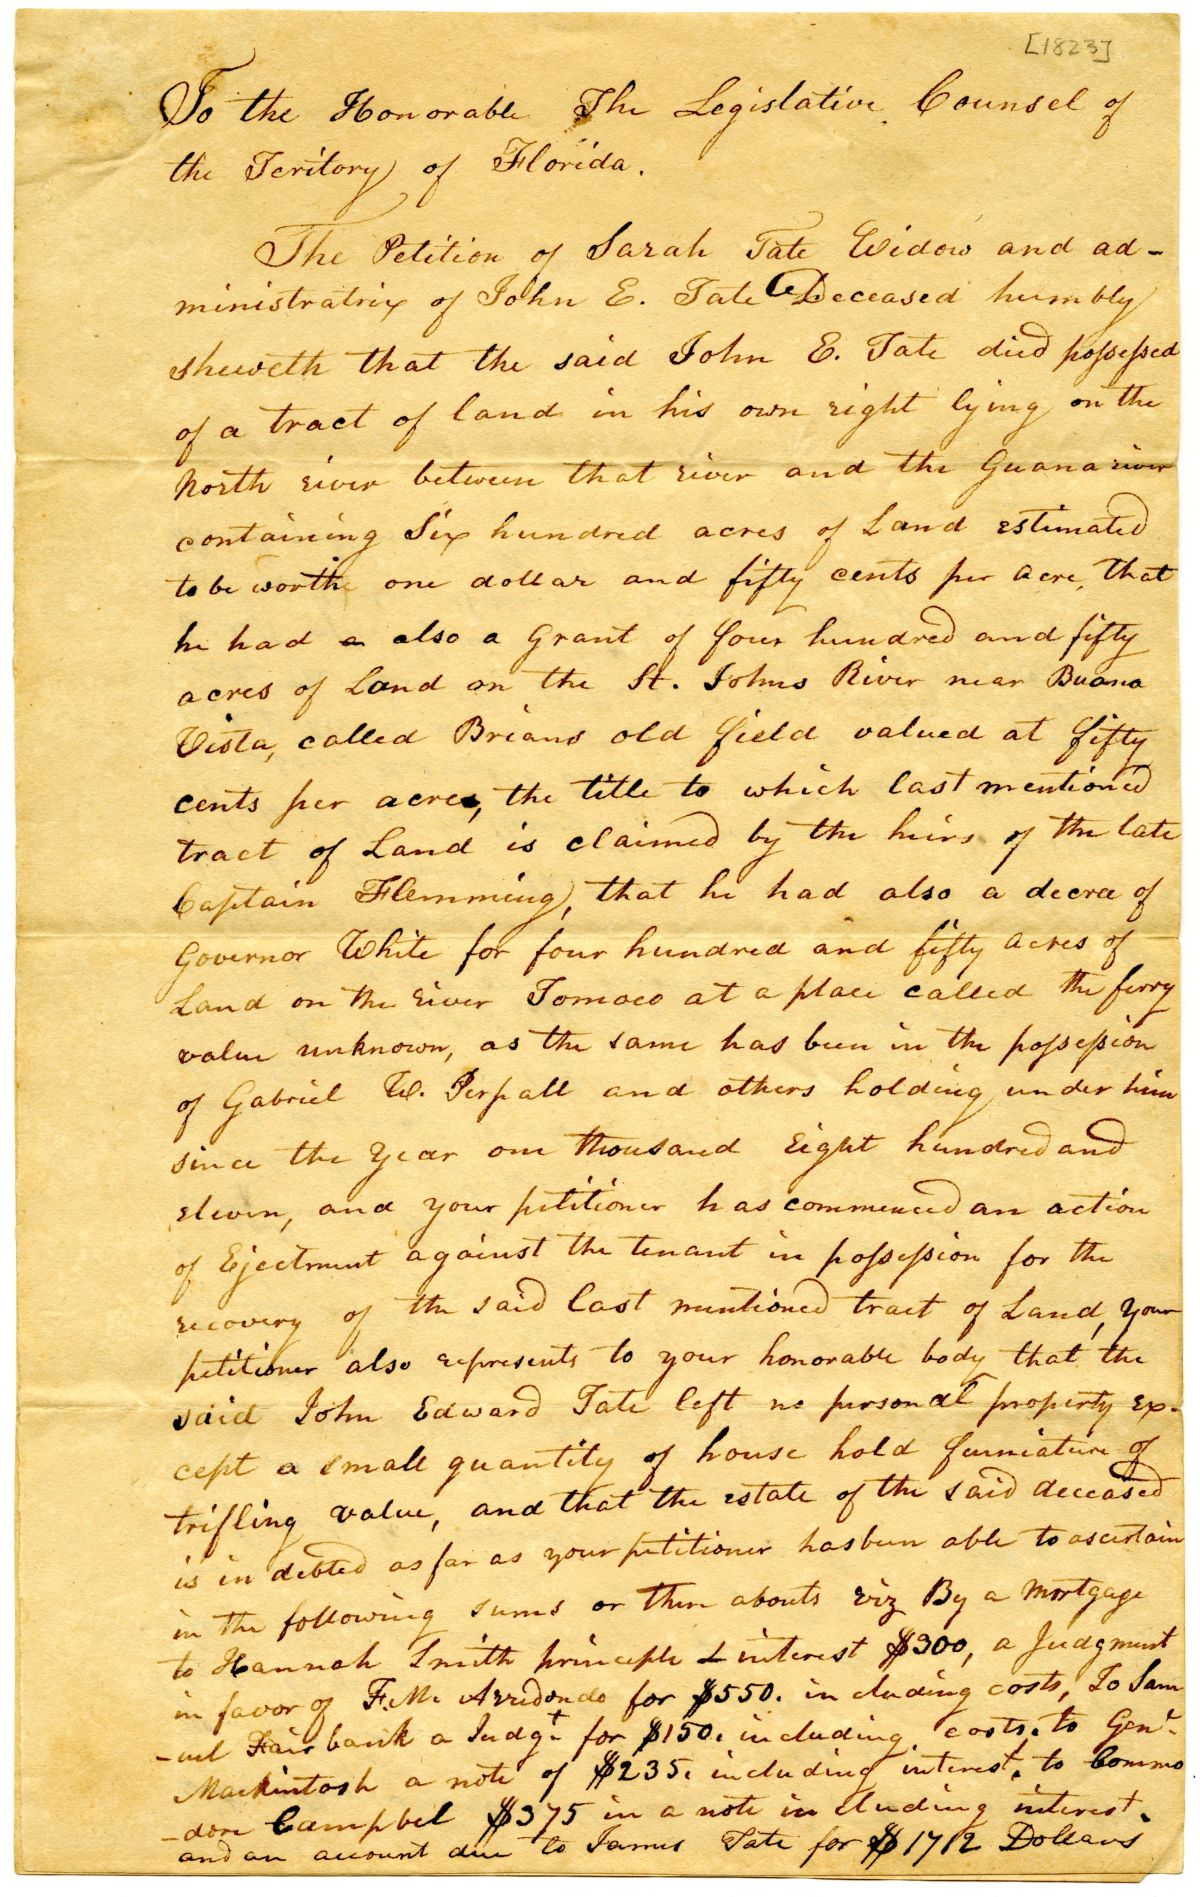 [1823]
To the Honorable The Legislative Counsel of
the Teritory of Florida.
The Petition of Sarah Tate Widow and ad-
ministratrix of John E. Tate Deceased humbly
sheweth that the said John E. Tate died possessed
of a tract of land in his own right lying on the
North river between that river and the Guana river
containing Six hundred acres of Land estimated
to be worth one dollar and fifty cents per acre, that
he had also a Grant of four hundred and fifty
acres of Land on the St. Johns River near Buana
Vista, called Brians old field valued at fifty
cents per acre, the title to which last mentioned
tract of Land is claimed by the heirs of the late
Captain Flemming, that he had also a decree of
Governor White for four hundred and fifty acres of
Land on the river Tomoco at a place called the ferry
value unknown, as the same has been in the possession
of Gabriel W. Perpall and others holding under him
since the Year one thousand Eight hundred and
eleven, and your petitioner has commenced an action
of Ejectment against the tenant in possession for the
recovery of the said last mentioned tract of Land, Your
petitioner also represents to your honorable body that the
said John Edward Tate left no personal property ex-
cept a small quantity of house hold furniature of
trifling value, and that the estate of the said deceased
is in debted as far as your petitioner has been able to ascertain
in the following sums or there abouts viz By a Mortgage
to Hannah Smith principle & interest $300, a Judgment
in favor of F. M. Arredondo for $550. including costs, To Sam
-uel Fairbank a Judgt. for $150. including costs. to Genl.
Mackintosh a note of $235. including interest. to Commo
-dore Campbel $375 in a note including interest.
and an account due to James Tate for $1712 Dollars